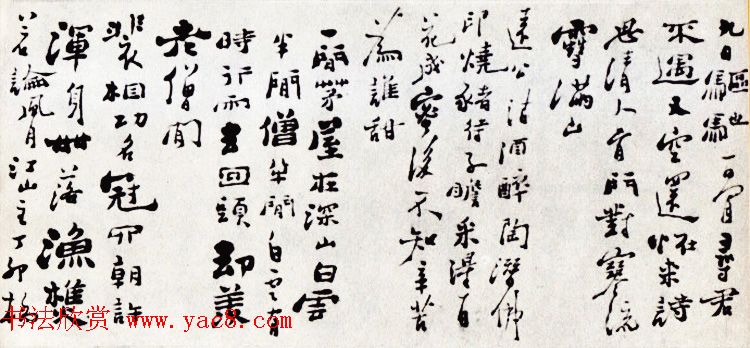 九日驅馳一日閒尋君
不遇又空還怪來詩
思清人骨門對寒流
雪滿山
遠公沽酒醉陶潛佛
印燒猪待子瞻采得百
花成蜜後不知辛苦
為誰甜
一間茅屋在深山白雲
半間僧半間白雲有
時行雨去回頭却羨
老僧閒
裴相功名冠四朝許
渾身世落漁樵
若論風月江山主丁卯橋
书法欣赏 www.yac8.com